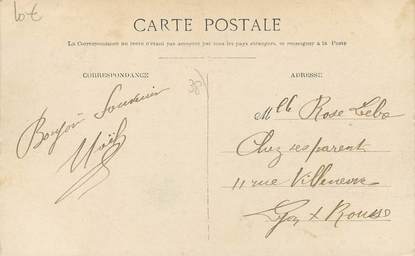 Lot
CARTE POSTALE
La Correspondance au recto n'étant pas acceptée par tous les pays étrangers, se renseigner à la Poste
CORRESPONDANCE
38
Bonjour Souvenir
ADRESSE
Mlle Rose Lebo
Chez ses parent
11 rue Villeneuve
Lyon x Rousso